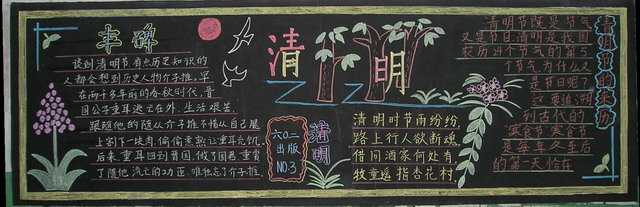 丰碑
谈到清明节,有点历史知识的
人都会想到历史人物介子推,早
在两千多年前的春秋时代,晋
国公子重耳逃亡在外,生活艰苦,
跟随他的随从介子推不惜从自己腿
上割下一块肉,偷偷煮熟让重耳充饥。
后来,重耳回到晋国,做了国君,重赏
了随他流亡的功臣,唯独忘了介子推。
清明
六(二)
出版
NO.3
清明
清明时节雨纷纷,
路上行人欲断魂。
借问酒家何处有
牧童遥指杏花村
清明节的来历
清明节既是节气
又是节日清明是我国
农历24个节气的第5
个节气为什么又
是节日呢?
这要追溯
到古代的
寒食节寒食节
是每年冬至后
的第一天恰在